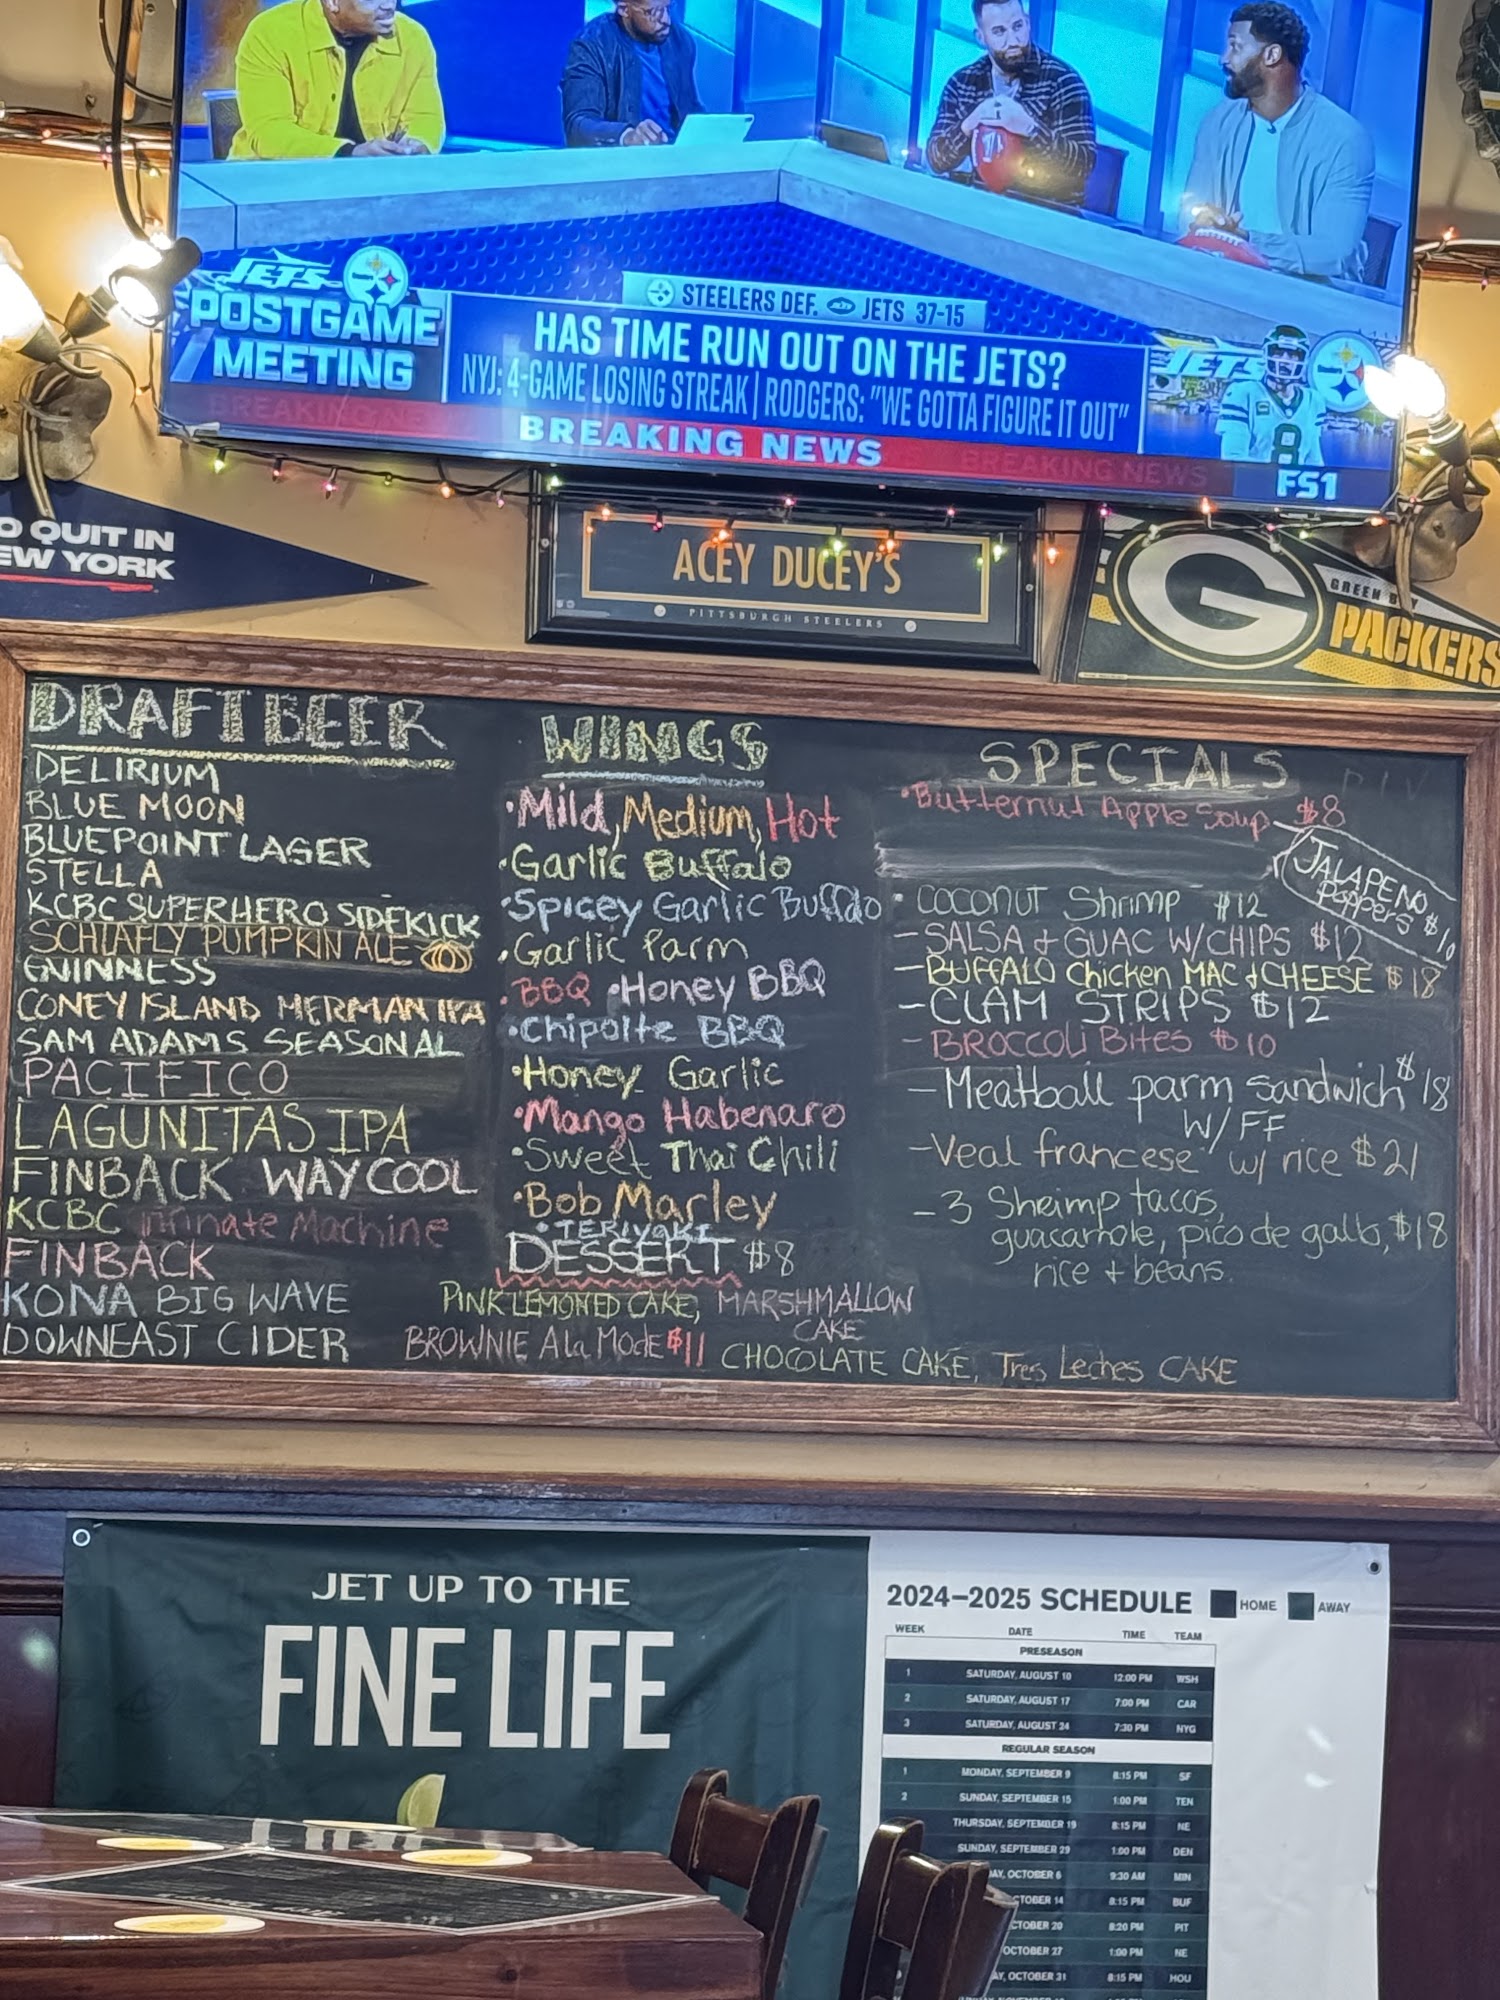 JETS
POSTGAME
MEETING
STEELERS DEF. JETS 37-15
HAS TIME RUN OUT ON THE JETS?
NYJ: 4-GAME LOSING STREAK | RODGERS: "WE GOTTA FIGURE IT OUT"
BREAKING NEWS
BREAKING NEWS
JETS
8
FS1
O QUIT IN
EW YORK
ACEY DUCEY'S
PITTSBURGH STEELERS
G
GREEN BAY
PACKERS
DRAFT BEER
DELIRIUM
BLUE MOON
BLUEPOINT LAGER
STELLA
KCBC SUPERHERO SIDEKICK
SCHLAFLY PUMPKIN ALE
GUINNESS
CONEY ISLAND MERMAN IPA
SAM ADAMS SEASONAL
PACIFICO
LAGUNITAS IPA
FINBACK WAY COOL
KCBC infinate Machine
FINBACK
KONA BIG WAVE
DOWNEAST CIDER
WINGS
•Mild, Medium, Hot
•Garlic Buffalo
•Spicey Garlic Buffalo
•Garlic Parm
•BBQ •Honey BBQ
•Chipolte BBQ
•Honey Garlic
•Mango Habenaro
•Sweet Thai Chili
•Bob Marley
•TERIYAKI
DESSERT $8
PINK LEMONED CAKE, MARSHMALLOW
CAKE
BROWNIE A La MODE $11
CHOCOLATE CAKE, Tres Leches CAKE
SPECIALS
•Butternut Apple Soup $8
JALAPENO
Poppers $10
• COCONUT Shrimp $12
- SALSA + GUAC W/CHIPS $12
- BUFFALO Chicken MAC + CHEESE $18
- CLAM STRIPS $12
- BROCCOLI BITES $10
- Meatball parm sandwich $18
W/ FF
- Veal francese w/ rice $21
- 3 Shrimp tacos,
guacamole, pico de gallo, $18
rice + beans.
JET UP TO THE
FINE LIFE
2024–2025 SCHEDULE HOME AWAY
WEEK DATE TIME TEAM
PRESEASON
1 SATURDAY, AUGUST 10 12:00 PM WSH
2 SATURDAY, AUGUST 17 7:00 PM CAR
3 SATURDAY, AUGUST 24 7:30 PM NYG
REGULAR SEASON
1 MONDAY, SEPTEMBER 9 8:15 PM SF
2 SUNDAY, SEPTEMBER 15 1:00 PM TEN
THURSDAY, SEPTEMBER 19 8:15 PM NE
SUNDAY, SEPTEMBER 29 1:00 PM DEN
AY, OCTOBER 6 9:30 AM MIN
CTOBER 14 8:15 PM BUF
CTOBER 20 8:20 PM PIT
OCTOBER 27 1:00 PM NE
AY, OCTOBER 31 8:15 PM HOU